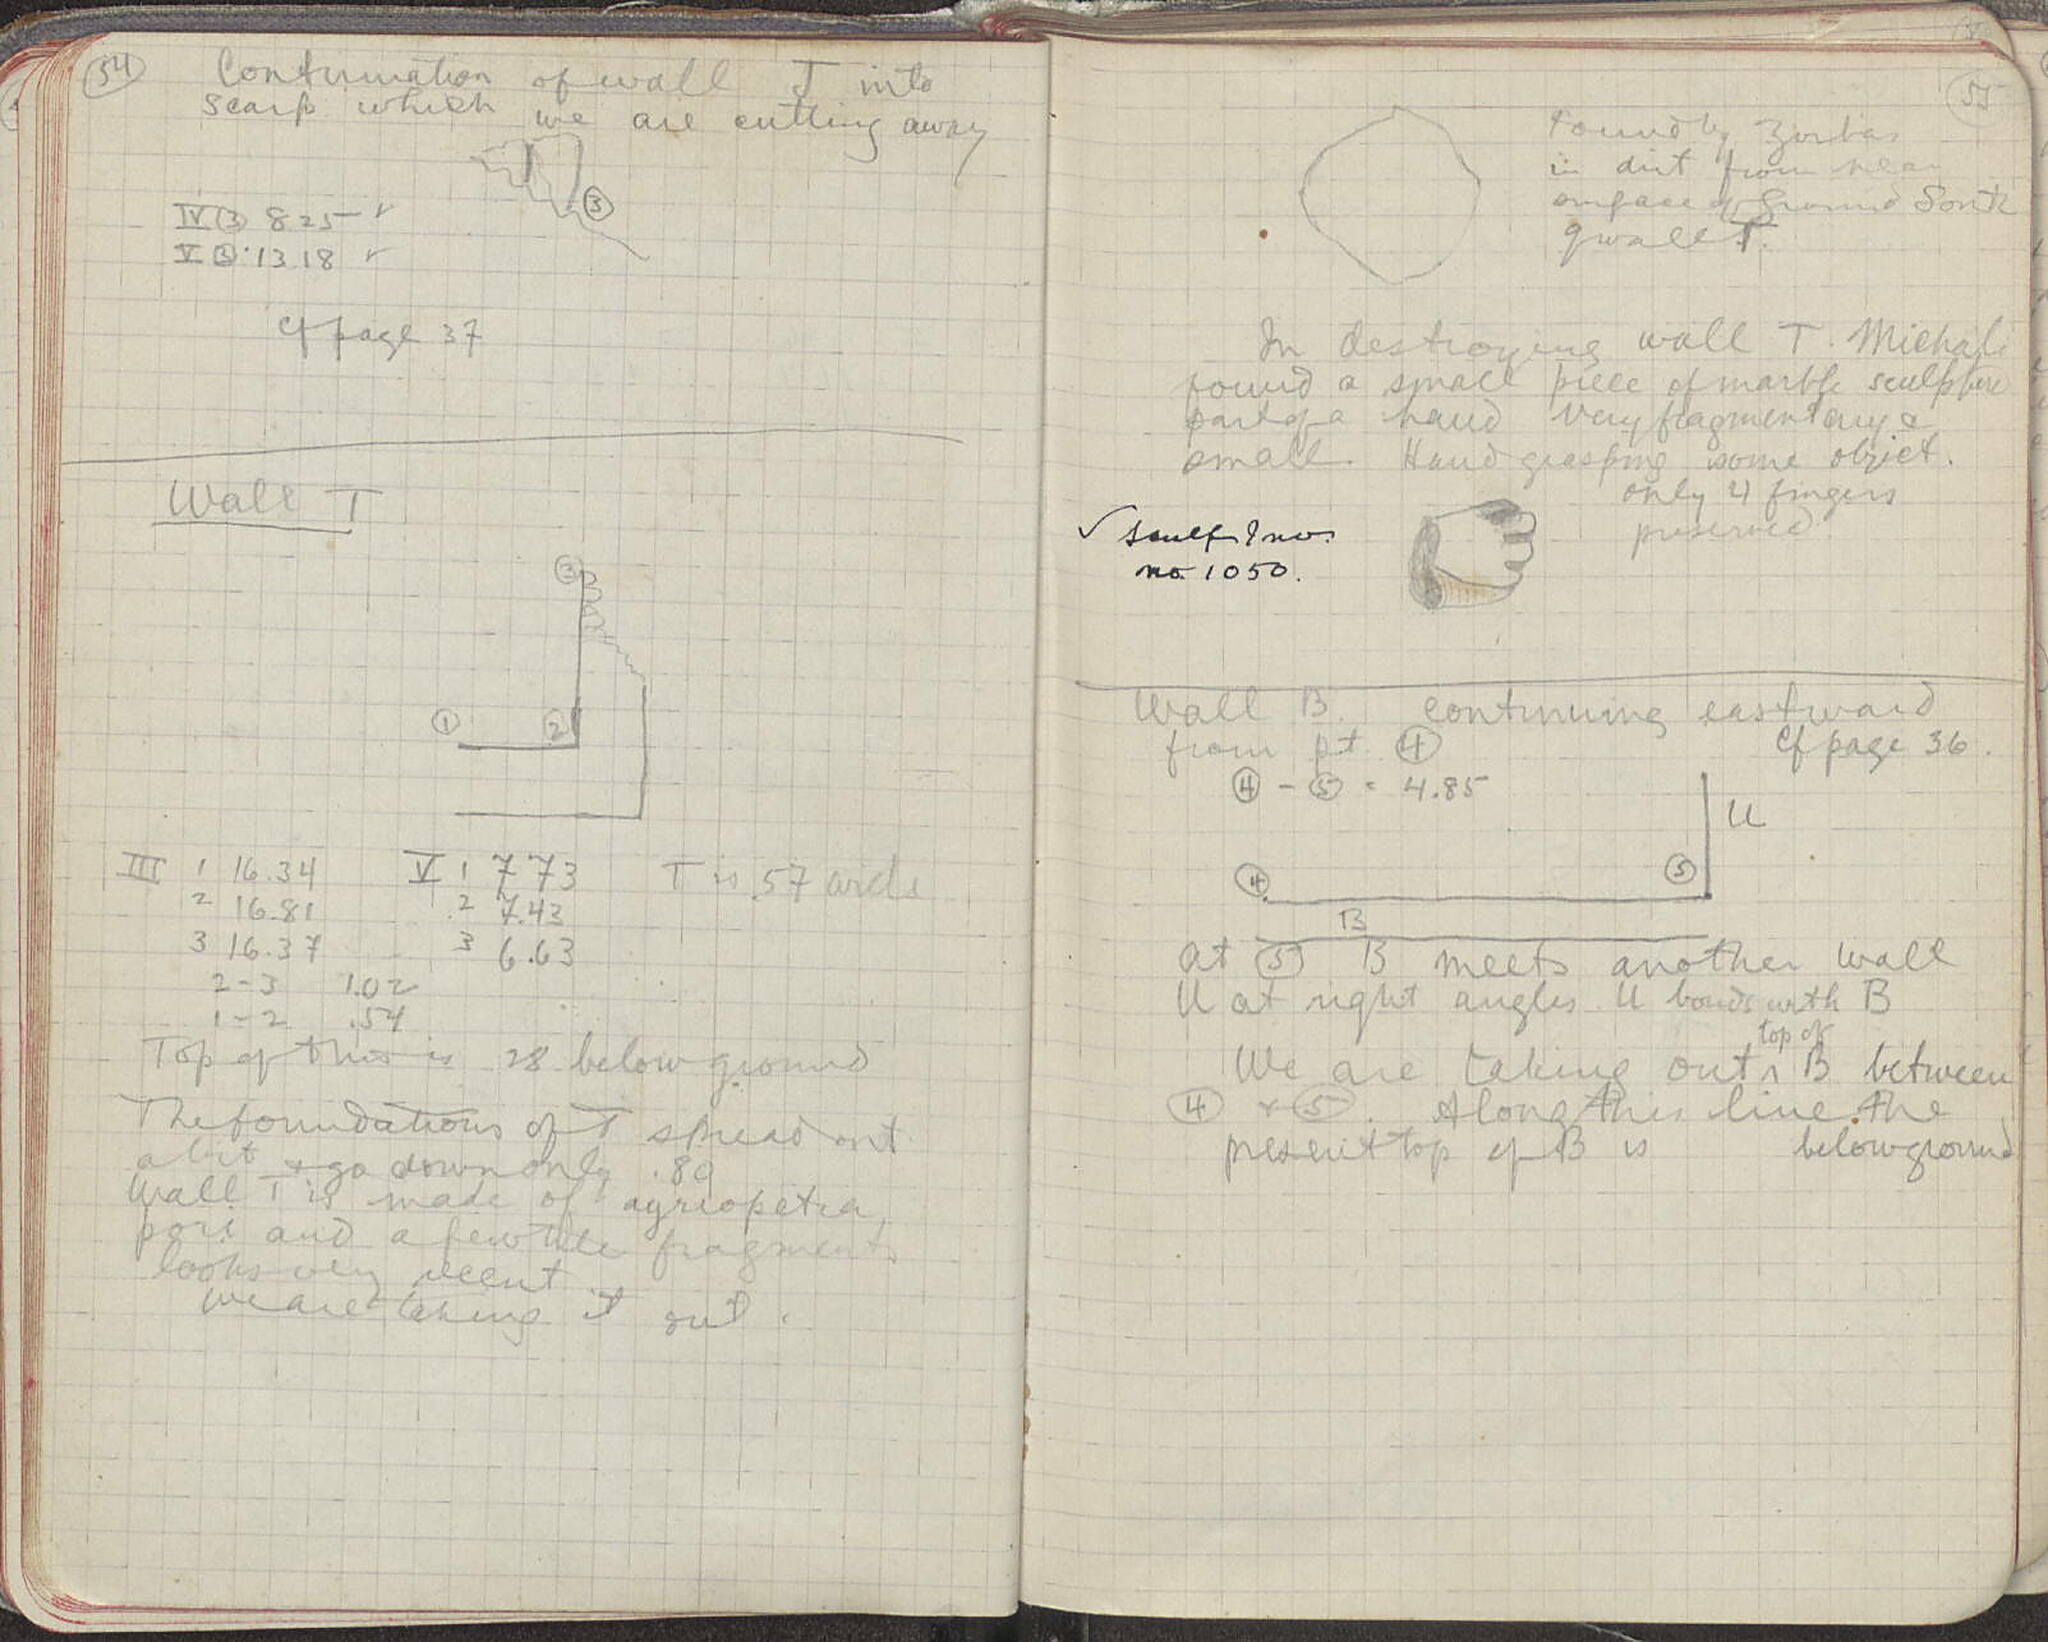 54
Continuation of wall J into
scarp which we are cutting away
3
IV 3 8 25
V 3 13 18
cf page 37
Wall T
3
1 2
III 1 16.34 V 1 7 73 T is .57 wide
2 16.81 2 7.43
3 16.37 3 6.63
2-3 1.02
1-2 .54
Top of this is .28 below ground
The foundations of T spread out
a bit + go down only .89
Wall T is made of agriopetra,
pori and a few tile fragments
looks very recent
we are taking it out.
55
Found by Zorbas
in dirt from near
surface of ground South
of wall T.
In destroying wall T. Michali
found a small piece of marble sculpture
part of a hand very fragmentary &
small. Hand grasping some object.
only 4 fingers
preserved
✓ Sculp Inv.
no. 1050.
Wall B. continuing eastward
from pt. 4 cf page 36.
4 - 5 = 4.85
U
4 5
B
At 5 B meets another wall
U at right angles. U bonds with B
top of
We are taking out ^ B between
4 + 5. Along this line the
present top of B is below ground